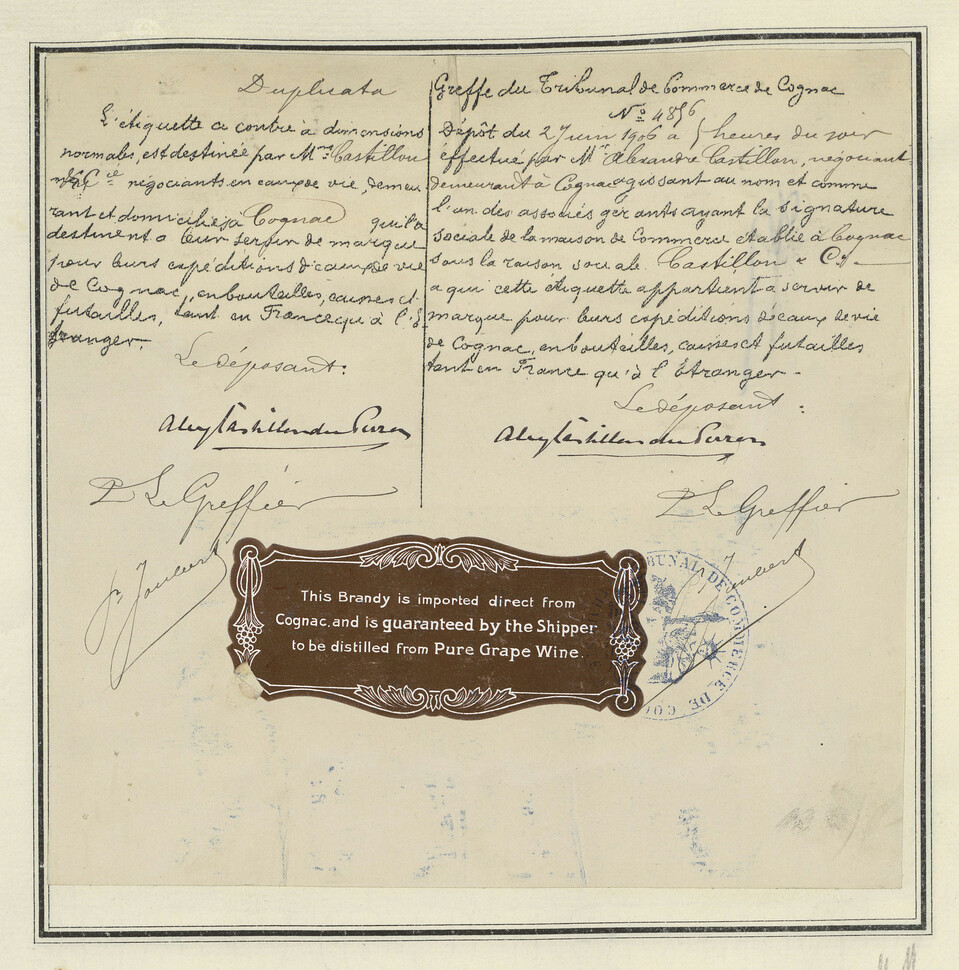 Duplicata
L'étiquette ci contre à dimensions
normales, est destinée par Mrs Castillon
& Cie négociants en eaux de vie, demeu
rant et domiciliés à Cognac qu'ils
destinent à leur servir de marque
pour leurs expéditions d'eaux de vie
de Cognac, en bouteilles, caisses et
futailles, tant en France qu'à l'É
tranger.
Le déposant:
Alex Castillon du Perron
P Le Greffier
Greffe du Tribunal de Commerce de Cognac
No 4856
Dépôt du 2 Juin 1906 à 5 heures du soir
effectué par Mr Alexandre Castillon, négociant
demeurant à Cognac agissant au nom et comme
l'un des associés gérants ayant la signature
sociale de la maison de Commerce établie à Cognac
sous la raison sociale Castillon & Cie
à qui cette étiquette appartient à servir de
marque pour leurs expéditions d'eaux de vie
de Cognac, en bouteilles, caisses et futailles
tant en France qu'à l'Étranger.
Le déposant:
Alex Castillon du Perron
P Le Greffier
This Brandy is imported direct from
Cognac, and is guaranteed by the Shipper
to be distilled from Pure Grape Wine.
TRIBUNAL DE COMMERCE DE COGNAC